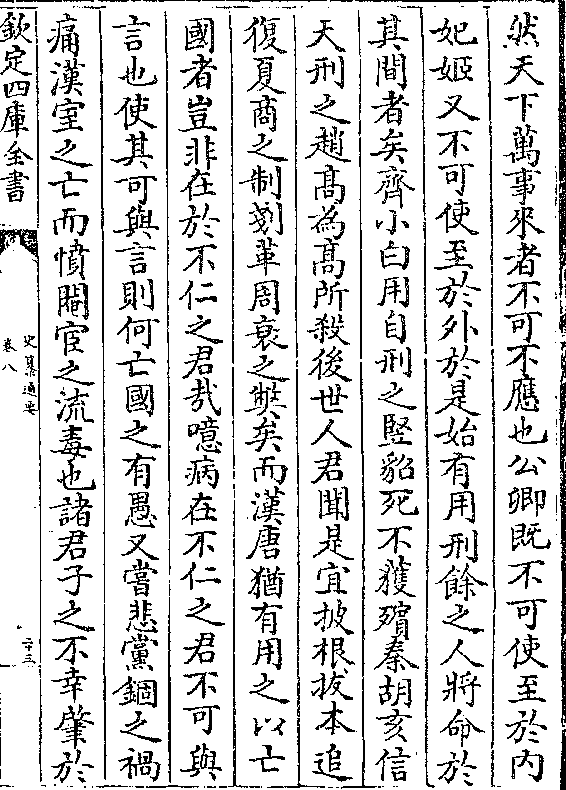 然天下萬事來者不可不應也公卿既不可使至於内
妃姬又不可使至於外於是始有用刑餘之人將命於
其間者矣齊小白用自刑之竪貂死不獲殯秦胡亥信
天刑之趙髙為髙所殺後世人君聞是宜披根拔本追
復夏商之制剗革周衰之弊矣而漢唐猶有用之以亡
國者豈非在於不仁之君哉噫病在不仁之君不可與
言也使其可與言則何亡國之有愚又嘗悲黨錮之禍
痛漢室之亡而憤閹宦之流毒也諸君子之不幸肇於
欽定四庫全書
卷八
史纂通要
二十三